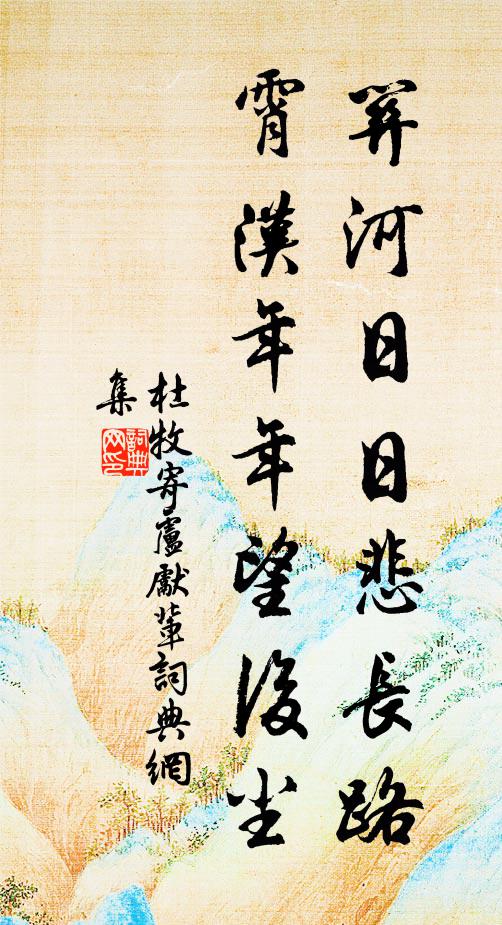 關河日日悲長路
霄漢年年望後塵
杜牧寄盧獻輩詞典網
集
詞典
网印